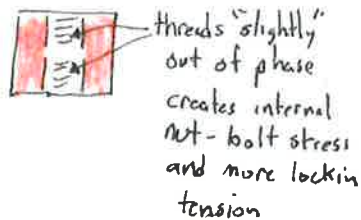 threads "slightly"
out of phase
creates internal
nut-bolt stress
and more lockin
tension